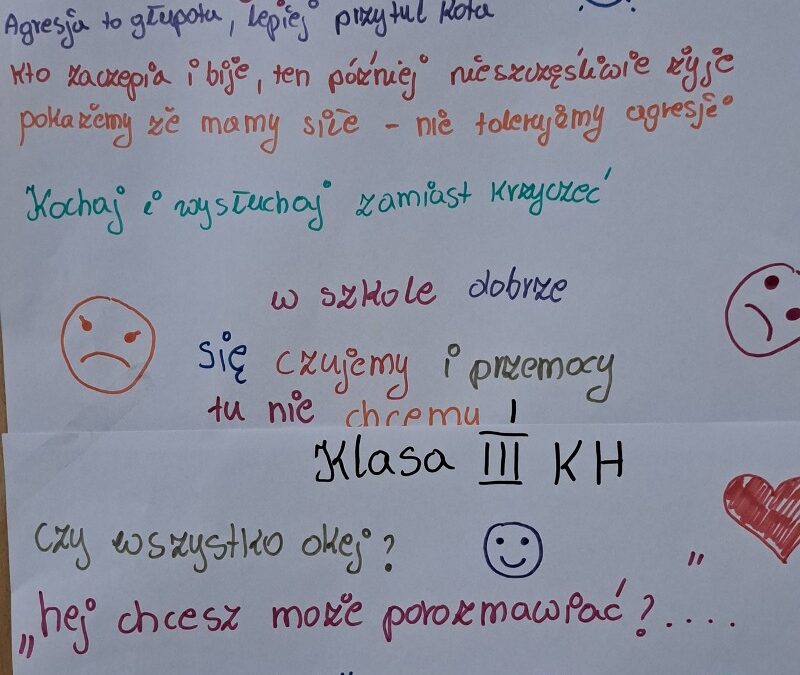 Agresja to głupota, lepiej przytul kota
Kto zaczepia i bije, ten później nieszczęśliwie żyje
pokażemy że mamy siłe - nie tolerujemy agresje
Kochaj i wysłuchaj zamiast krzyczeć
w szkole dobrze
się czujemy i przemocy
tu nie chcemy !
Klasa III KH
Czy wszystko okej?
„hej chcesz może porozmawiać?....”